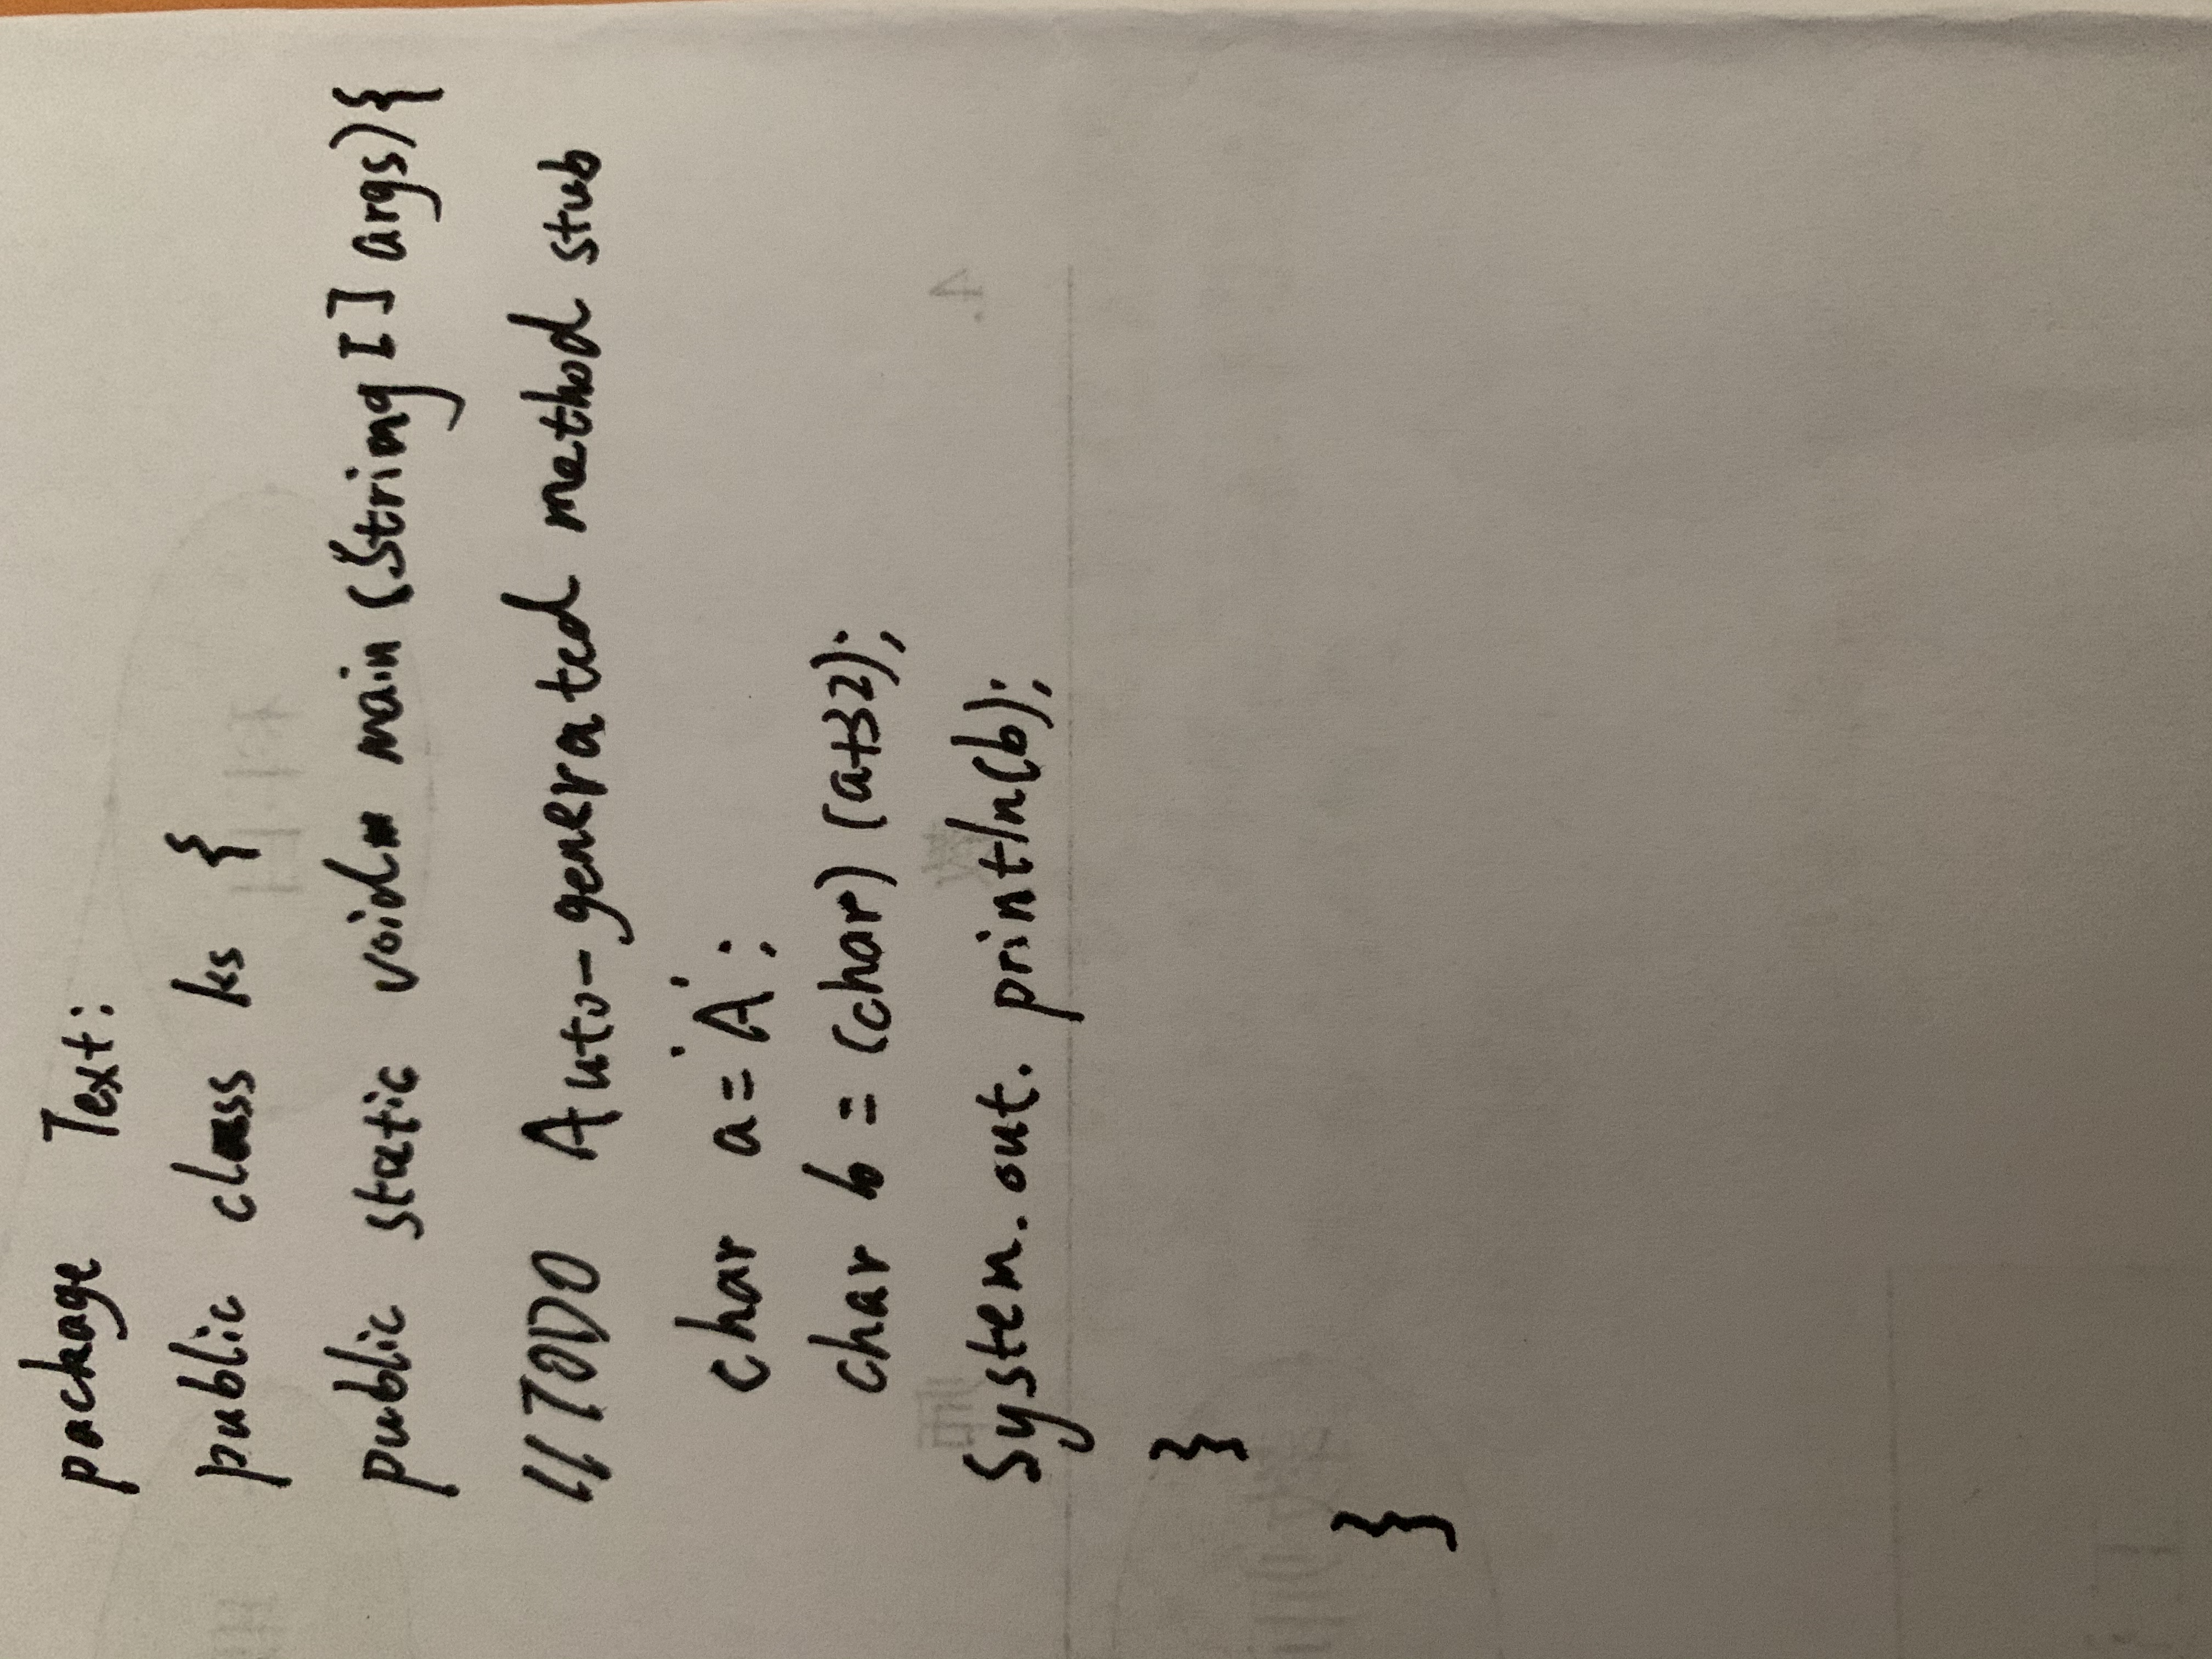 package Text:
public class ks {
public static void main (String [] args){
// TODO Auto-generated method stub
char a='A';
char b = (char) (a+32);
System.out.println(b);
}
}